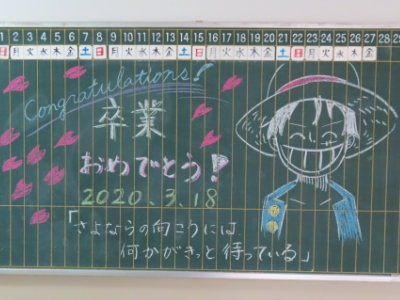 1 2 3 4 5 6 7 8 9 10 11 12 13 14 15 16 17 18 19 20 21 22 23 24 25 26 27 28
日 月 火 水 木 金 土 日 月 火 水 木 金 土 日 月 火 水 木 金 土 日 月 火 水 木 金
Congratulations!
卒業
おめでとう!
2020.3.18
「さよならの向こうには
何かがきっと待っている」